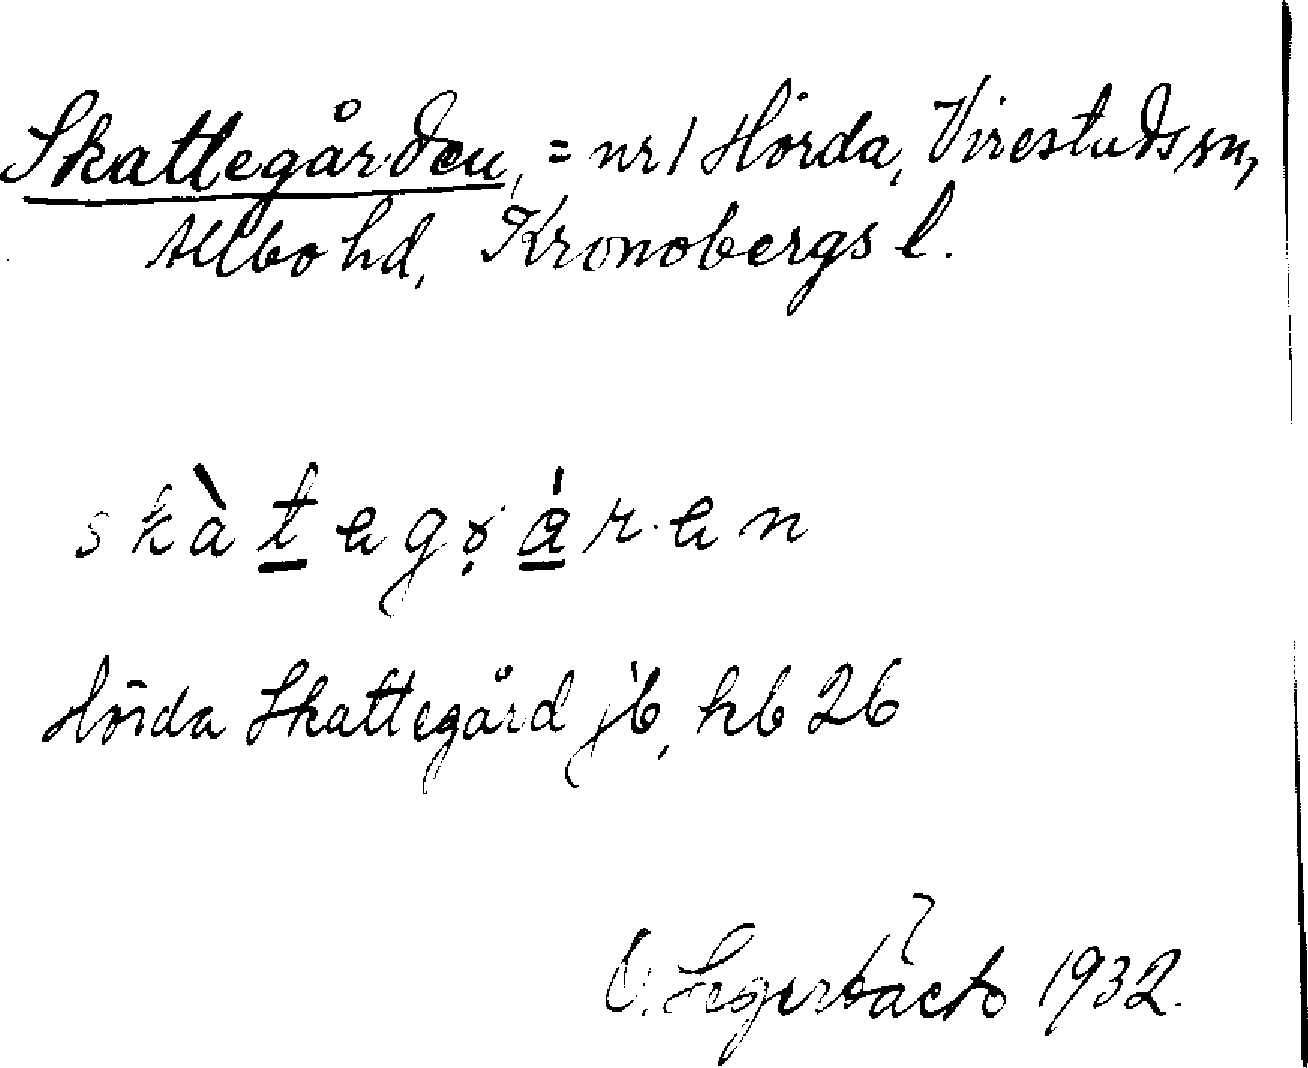 Skattegården, = nr 1 Hörda, Virestads sn,
Allbo hd, Kronobergs l.
skàt̲egọa̲̍ren
Hörda Skattegård jb, hb 26
O. Segerbäck 1932.